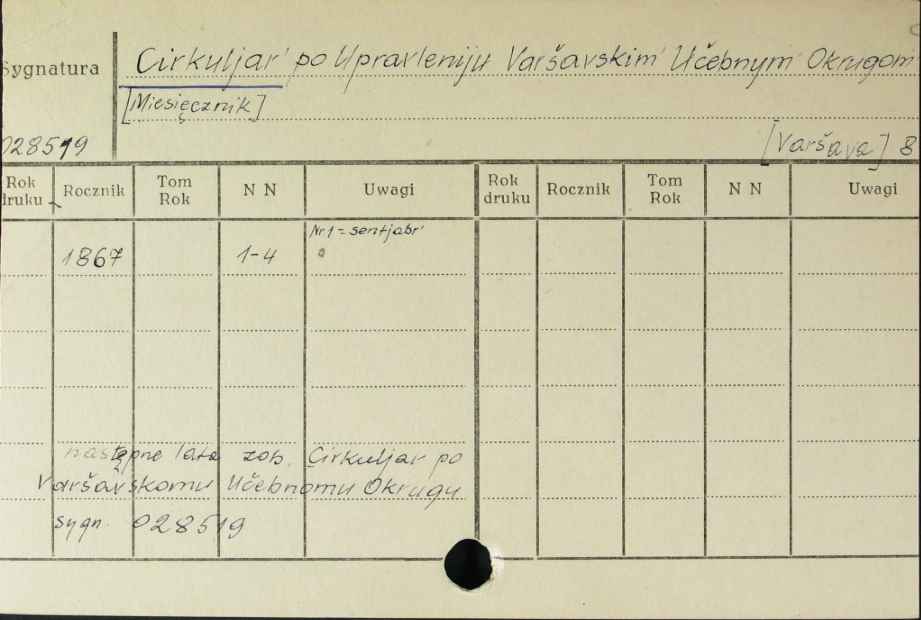 Sygnatura Cirkuljar' po Upravleniju Varšavskim Učebnym Okrugom
[Miesięcznik]
028519 [Varšava] 8
Rok druku Rocznik Tom Rok N N Uwagi Rok druku Rocznik Tom Rok N N Uwagi
Nr 1 = sentjabr'
1867 1-4
następne lata zob. Cirkuljar po
Varšavskomu Učebnomu Okrugu
sygn. 028519